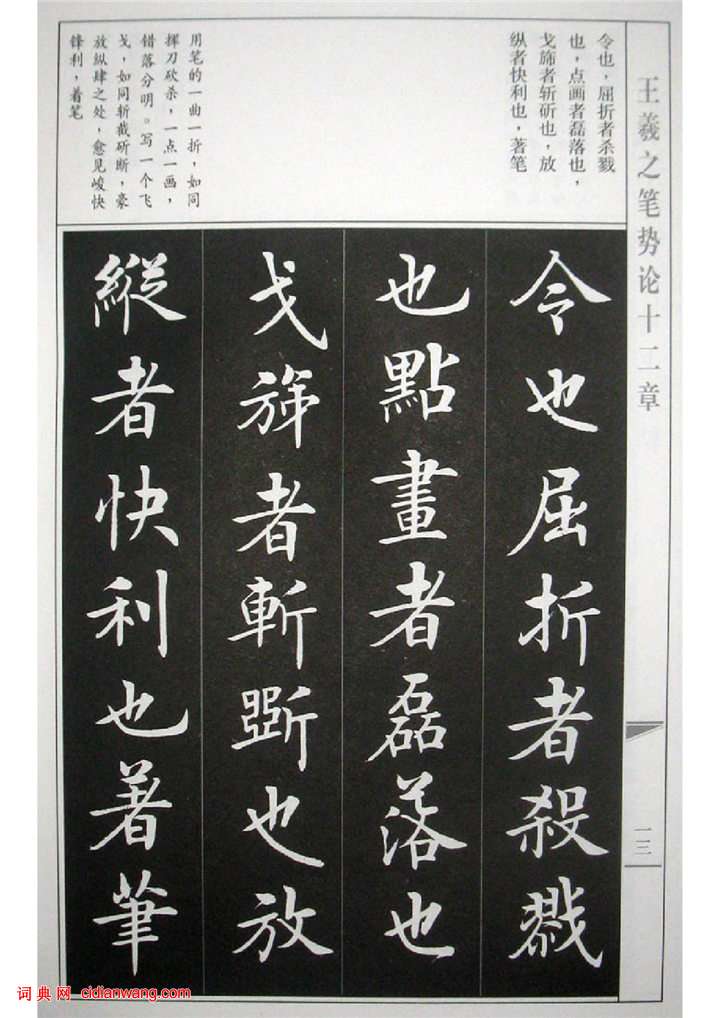 王羲之笔势论十二章
一三
令也，屈折者杀戮
也，点画者磊落也，
戈旆者斩斫也，放
纵者快利也，著笔
用笔的一曲一折，如同
挥刀砍杀，一点一画，
错落分明。写一个飞
戈，如同斩截斫断，豪
放纵肆之处，愈见峻快
锋利，着笔
令也屈折者殺戮
也點畫者磊落也
戈旆者斬斲也放
縱者快利也著筆
词典网 cidianwang.com